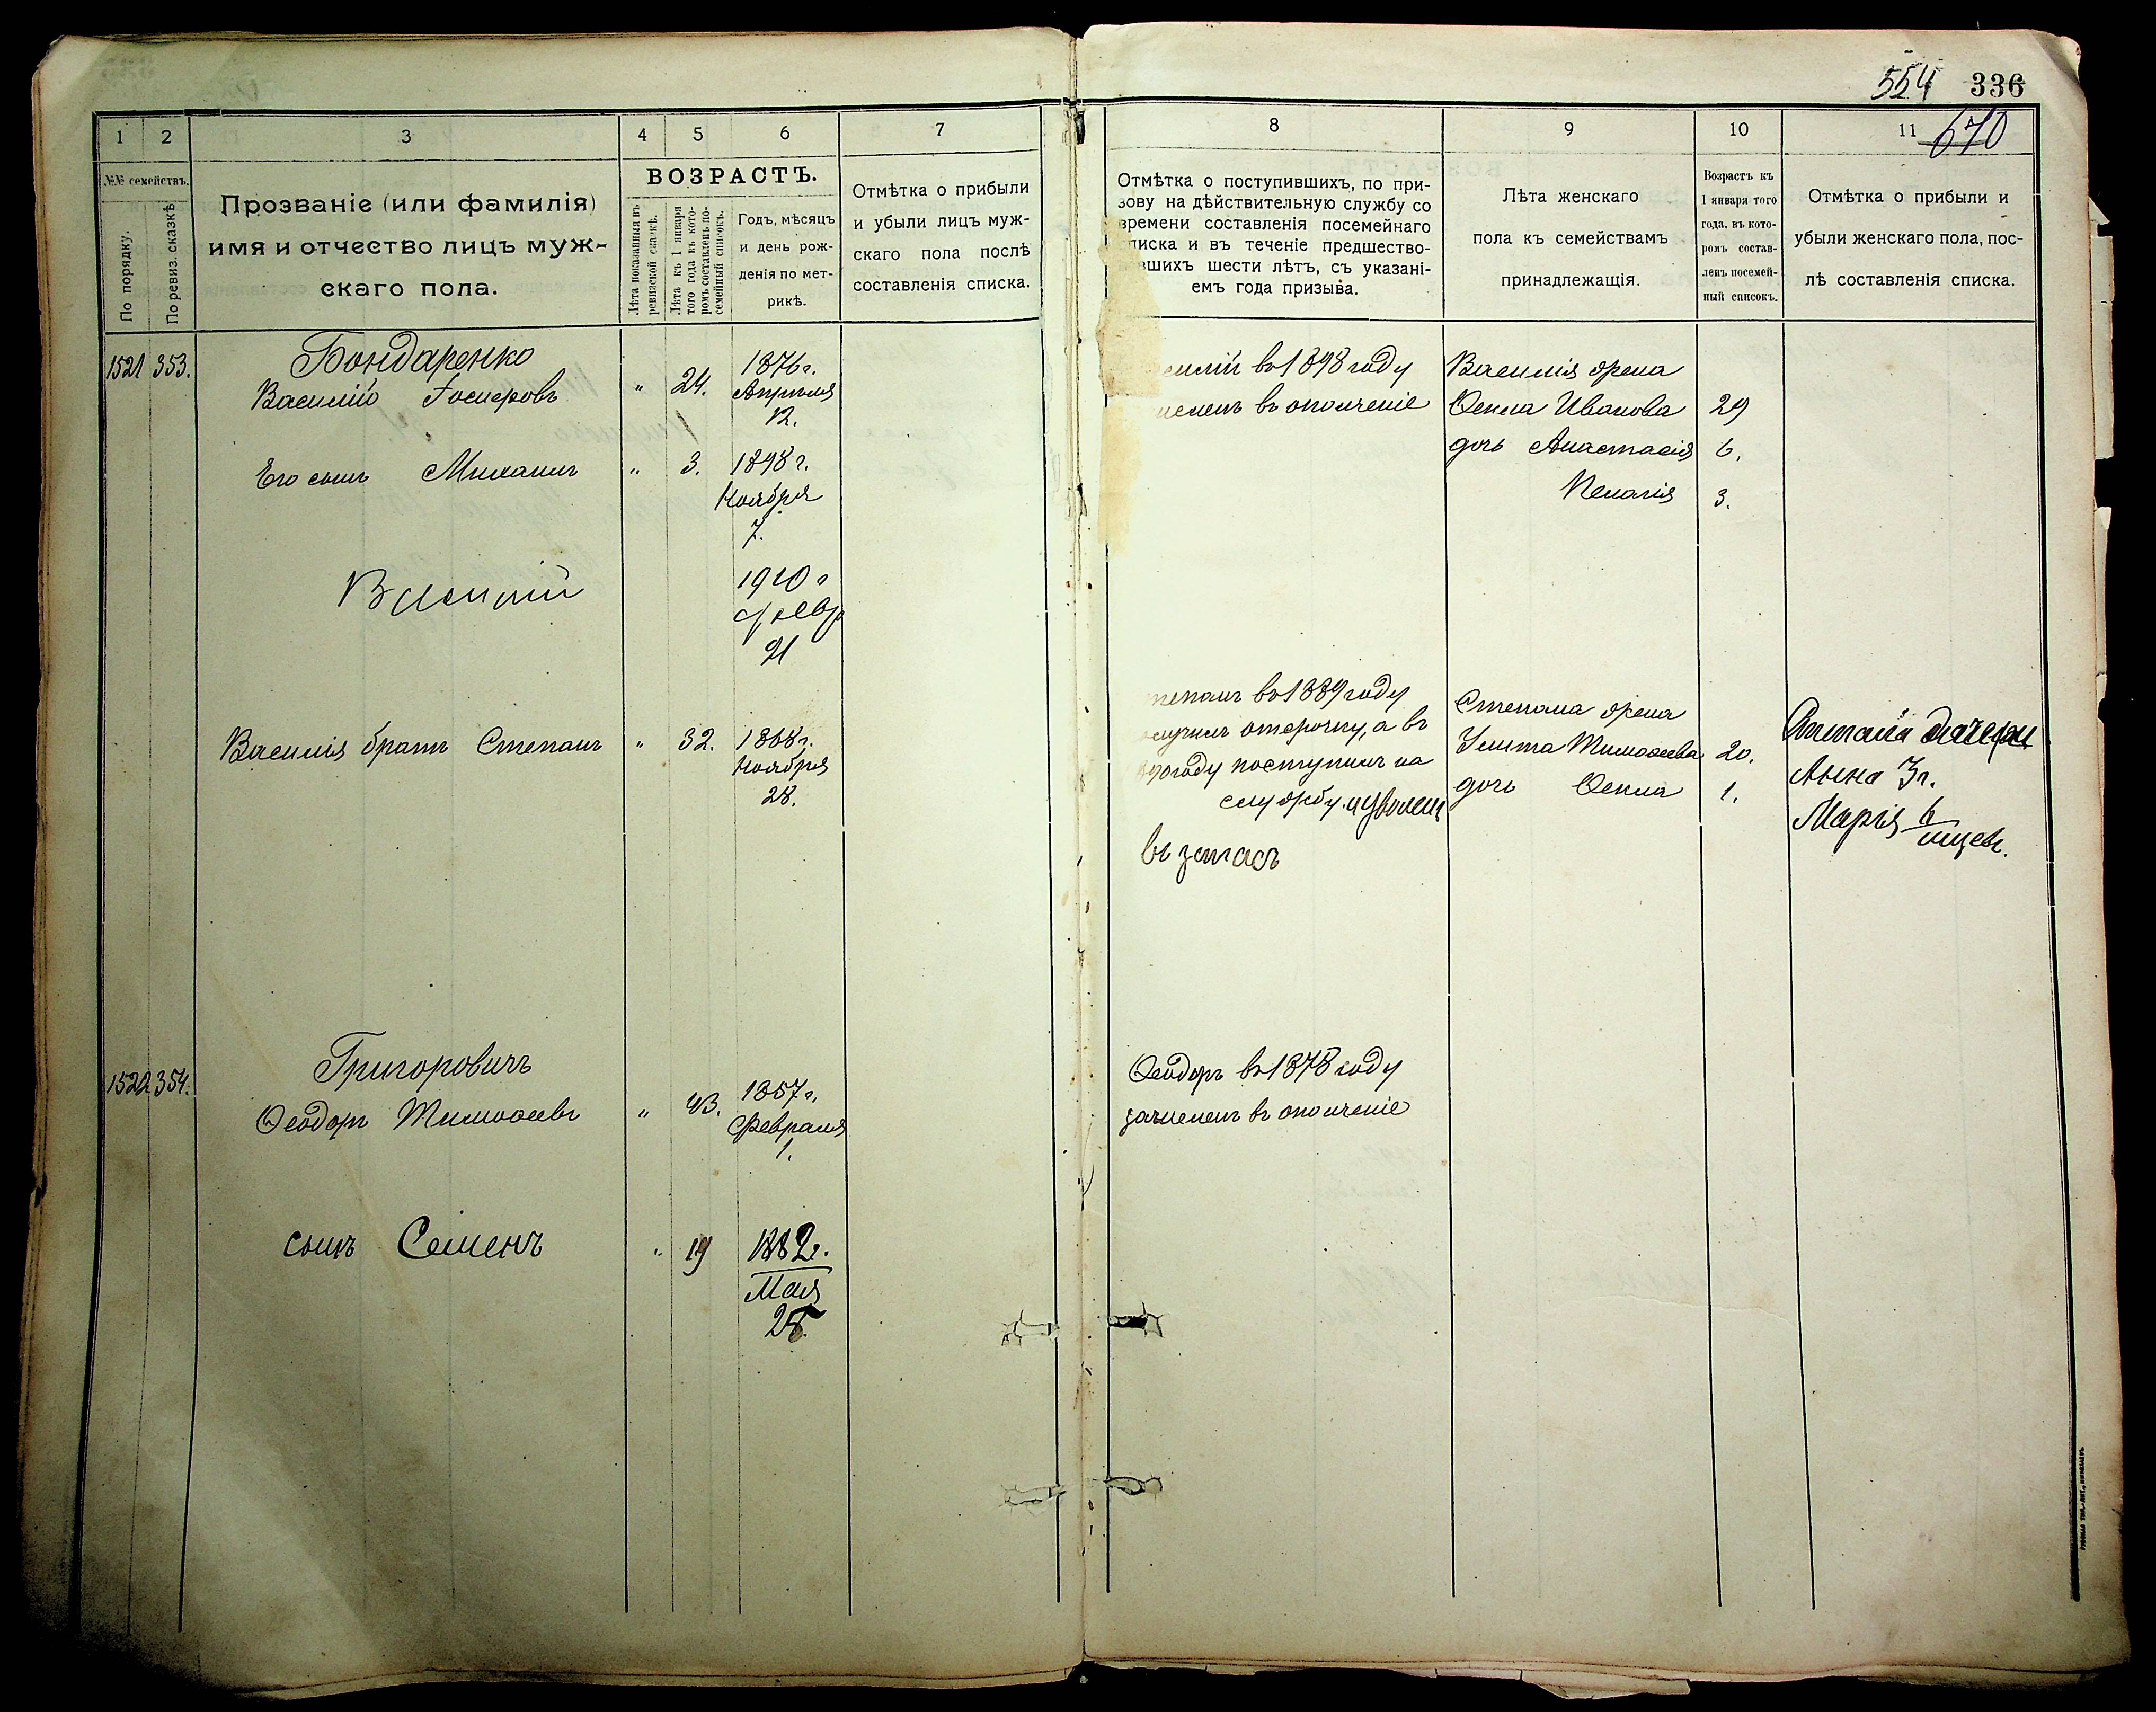 554 336
670
1 2 3 4 5 6 7
№№ семействъ.
По порядку.
По ревиз. сказкѣ
Прозваніе (или фамилія)
имя и отчество лицъ муж-
скаго пола.
ВОЗРАСТЪ.
Лѣта показанныя въ
ревизской сказкѣ.
Лѣта къ 1 января
того года въ кото-
ромъ составленъ по-
семейный списокъ.
Годъ, мѣсяцъ
и день рож-
денія по мет-
рикѣ.
Отмѣтка о прибыли
и убыли лицъ муж-
скаго пола послѣ
составленія списка.
1521 353.
Бондаренко
Василій Іосифовъ " 24. 1876 г.
Апрѣля
12.
Его сынъ Михаилъ " 3. 1898 г.
Ноября
7.
Василій 1910 г
Февр
21
Василія братъ Степанъ " 32. 1868 г.
Ноября
28.
1522 354.
Григоровичъ
Ѳеодоръ Тимоѳеевъ " 43. 1857 г.
Февраля
1.
сынъ Семенъ " 19 1882 г.
Мая
25.
8 9 10 11
Отмѣтка о поступившихъ, по при-
зову на дѣйствительную службу со
времени составленія посемейнаго
списка и въ теченіе предшество-
вшихъ шести лѣтъ, съ указані-
емъ года призыва.
Лѣта женскаго
пола къ семействамъ
принадлежащія.
Возрастъ къ
1 января того
года, въ кото-
ромъ состав-
ленъ посемей-
ный списокъ.
Отмѣтка о прибыли и
убыли женскаго пола, пос-
лѣ составленія списка.
силій въ 1898 году
исленъ въ ополченіе
Василія жена
Ѳекла Иванова 29
дочь Анастасія 6.
Пелагія 3.
тепанъ въ 1889 году
олучилъ отсрочку, а въ
90 году поступилъ на
службу. и уволенъ
въ запасъ
Степана жена
Улита Тимоѳеева 20.
дочь Ѳекла 1.
Степана дочери
Анна 3 г.
Марія 6
мцев.
Ѳеодоръ въ 1878 году
зачисленъ въ ополченіе